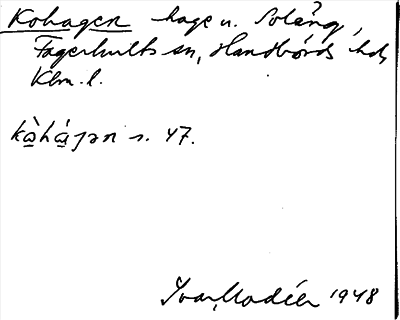 Kohagen hage u. Soläng,
Fagerhults sn, Handbörds hd,
Klm. l.
kὼhάgən s. 47.
Ivar Modéer 1948